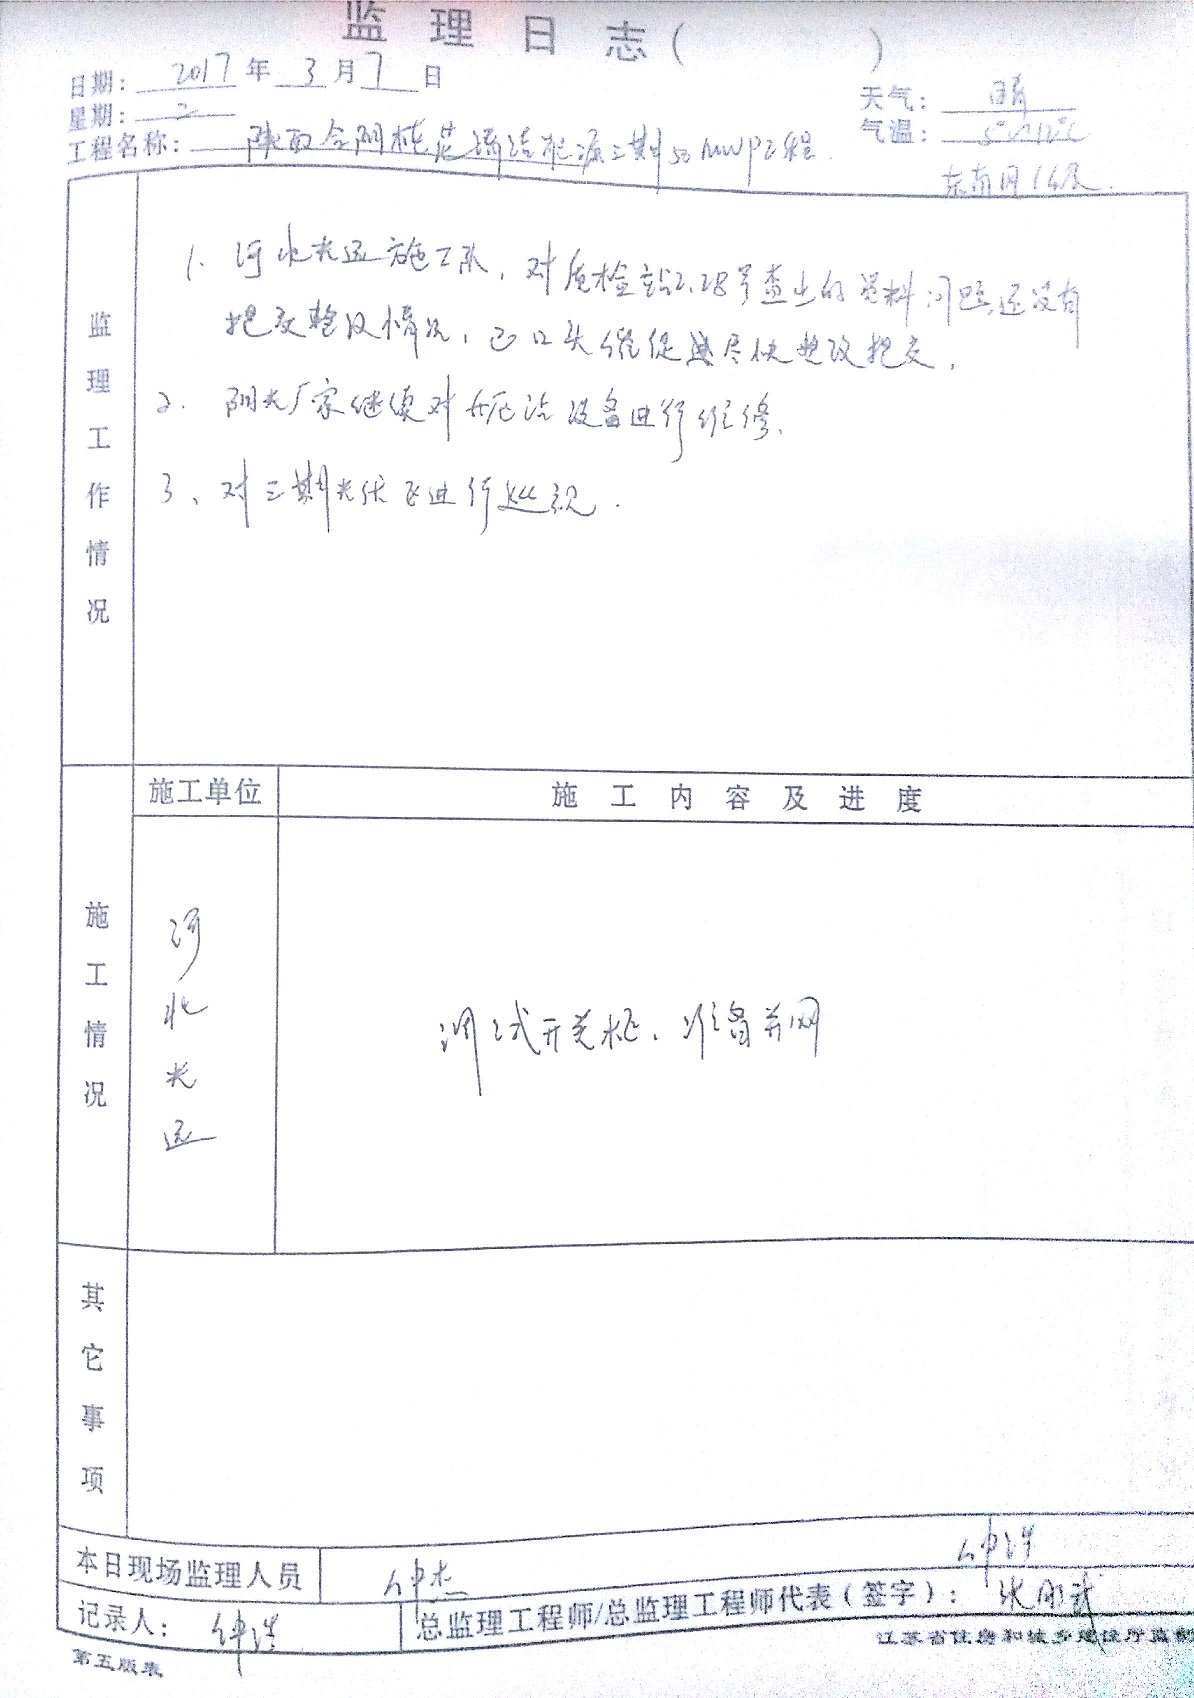 监 理 日 志 ( )
日期: 2017 年 3 月 7 日
天气: 晴
星期: 二
气温: 5℃~12℃
工程名称: 陕西合阳 能源三期50MWP工程.
东南风1级.
监理工作情况
1. 河北光远施工队, 对质检站2.28号查出的资料问题还没有
提交整改情况, 已口头催促其尽快整改提交.
2. 阳光厂家继续对 设备进行维修.
3、对三期光伏区进行巡视.
施工单位
施 工 内 容 及 进 度
施工情况
河北光远
调试开关柜. 准备并网
其它事项
本日现场监理人员
钟杰
记录人:
总监理工程师/总监理工程师代表(签字):
江苏省住房和城乡建设厅监制
第五版表